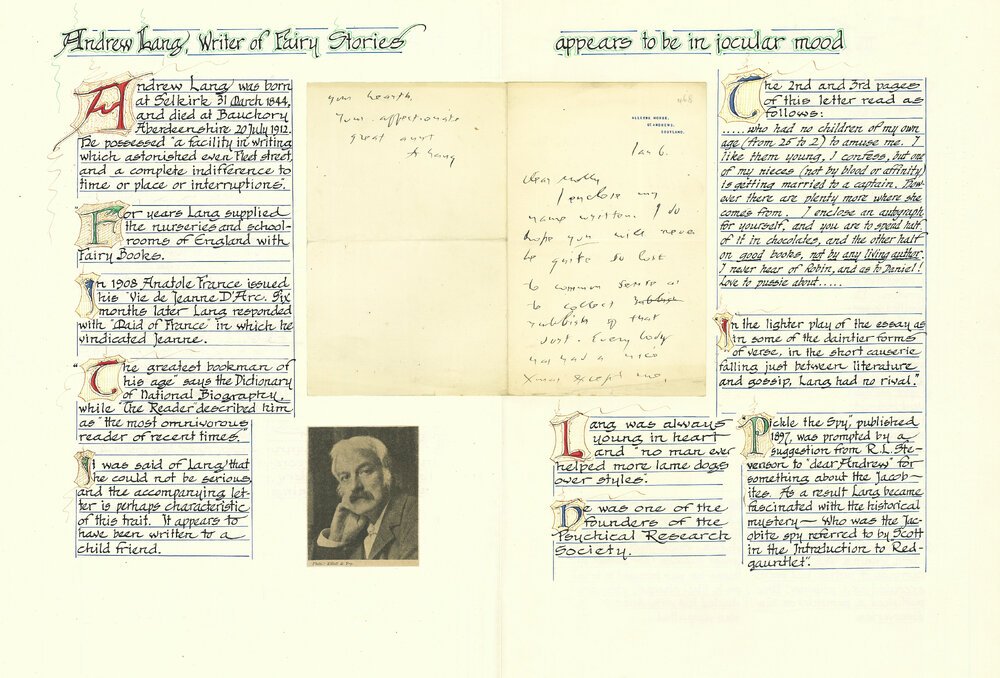 Andrew Lang, Writer of Fairy Stories
appears to be in jocular mood
Andrew Lang was born
at Selkirk 31 March 1844,
and died at Banchory
Aberdeenshire 20 July 1912.
He possessed "a facility in writing
which astonished even Fleet street,
and a complete indifference to
time or place or interruptions".
For years Lang supplied
the nurseries and school-
rooms of England with
Fairy Books.
In 1908 Anatole France issued
his 'Vie de Jeanne D'Arc. Six
months later Lang responded
with 'Maid of France' in which he
vindicated Jeanne.
"The greatest bookman of
his age" says the Dictionary
of National Biography,
while "The Reader" described him
as "the most omnivorous
reader of recent times."
It was said of Lang that
he could not be serious
and the accompanying let-
ter is perhaps characteristic
of this trait. It appears to
have been written to a
child friend.
your hearth.
Your affectionate
great aunt
A Lang
Photo: Elliott & Fry.
ALLEYNE HOUSE,
ST. ANDREWS,
SCOTLAND.
Jan 6.
Dear Molly
I enclose my
name written. I do
hope you will never
be quite so lost
to common sense as
to collect rubbish
rubbish of that
sort. Every body
has had a nice
Xmas except me,
The 2nd and 3rd pages
of this letter read as
follows:
.....who had no children of my own
age (from 25 to 2) to amuse me. I
like them young, I confess, but one
of my nieces (not by blood or affinity)
is getting married to a captain. How-
ever there are plenty more where she
comes from. I enclose an autograph
for yourself, and you are to spend half
of it in chocolates, and the other half
on good books, not by any living author.
I never hear of Robin, and as to Daniel!
Love to pussie about.....
"In the lighter play of the essay as
in some of the daintier forms
of verse, in the short causerie
falling just between literature
and gossip, Lang had no rival."
Lang was always
young in heart
and "no man ever
helped more lame dogs
over styles".
He was one of the
founders of the
Psychical Research
Society.
"Pickle the Spy," published
1897, was prompted by a
suggestion from R.L. Ste-
venson to "dear Andrew" for
something about the Jacob-
ites. As a result Lang became
fascinated with the historical
mystery— Who was the Jac-
obite spy referred to by Scott
in the Introduction to Red-
gauntlet".